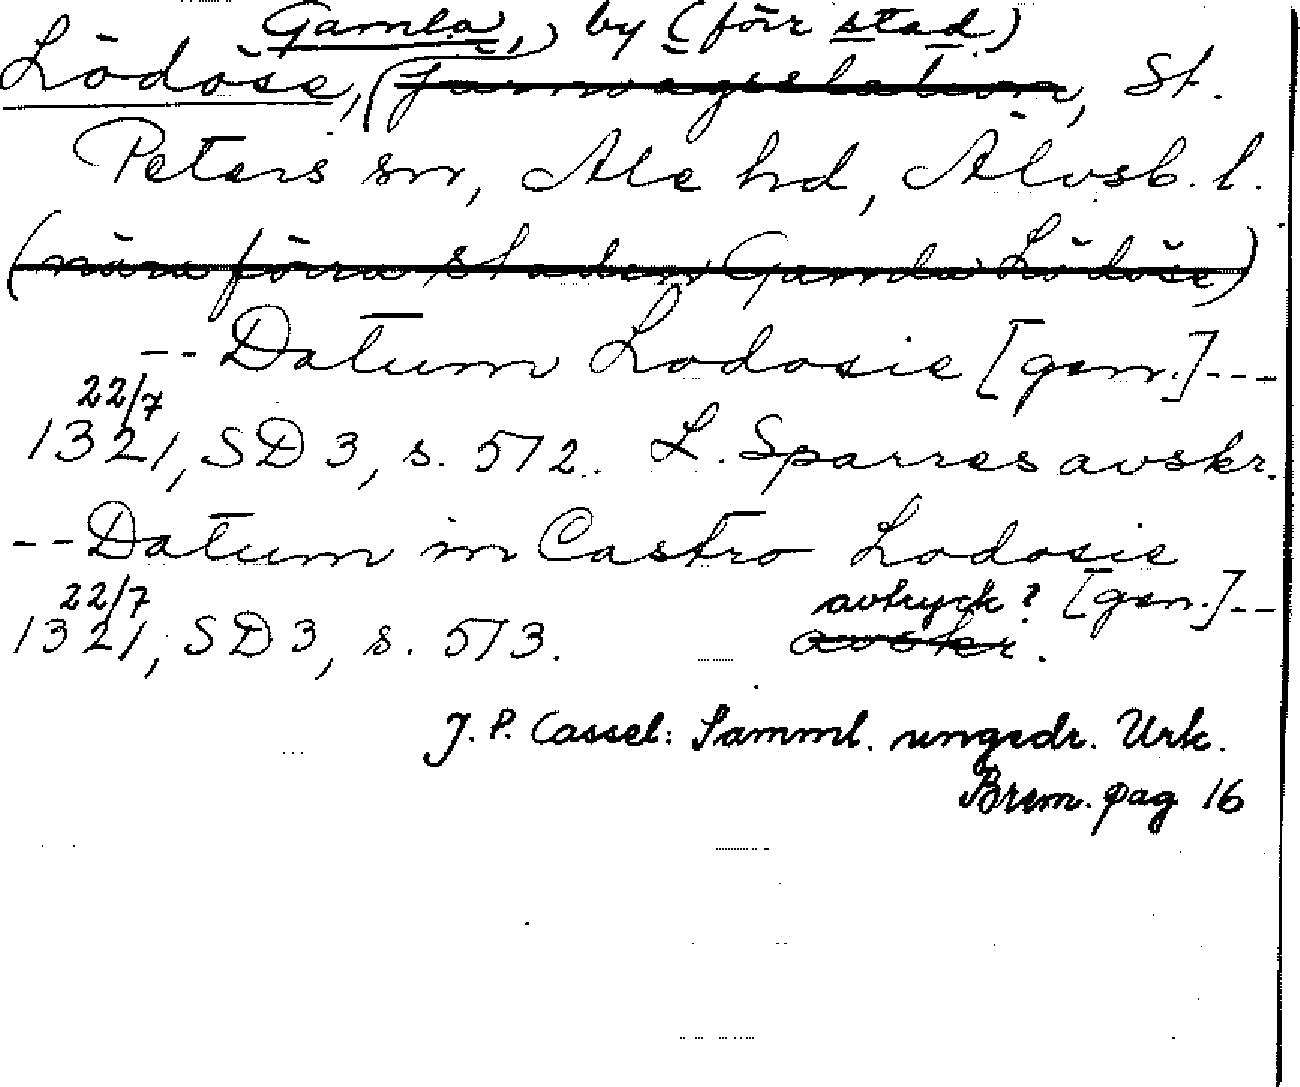 Gamla, by (förr stad)
Lödöse, (järnvägsstation, St.
Peters sn, Ale hd, Älvsb. l.
(nära förra staden Gamla Lödöse)
-- Datum Lodosie [gen.] ---
22/7
1321, SD 3, s. 512. L. Sparres avskr.
-- Datum in Castro Lodosie
22/7 avtryck? [gen.] --
1321, SD 3, s. 513. avskr.
J. P. Cassel: Samml. ungedr. Urk.
Brem. pag 16